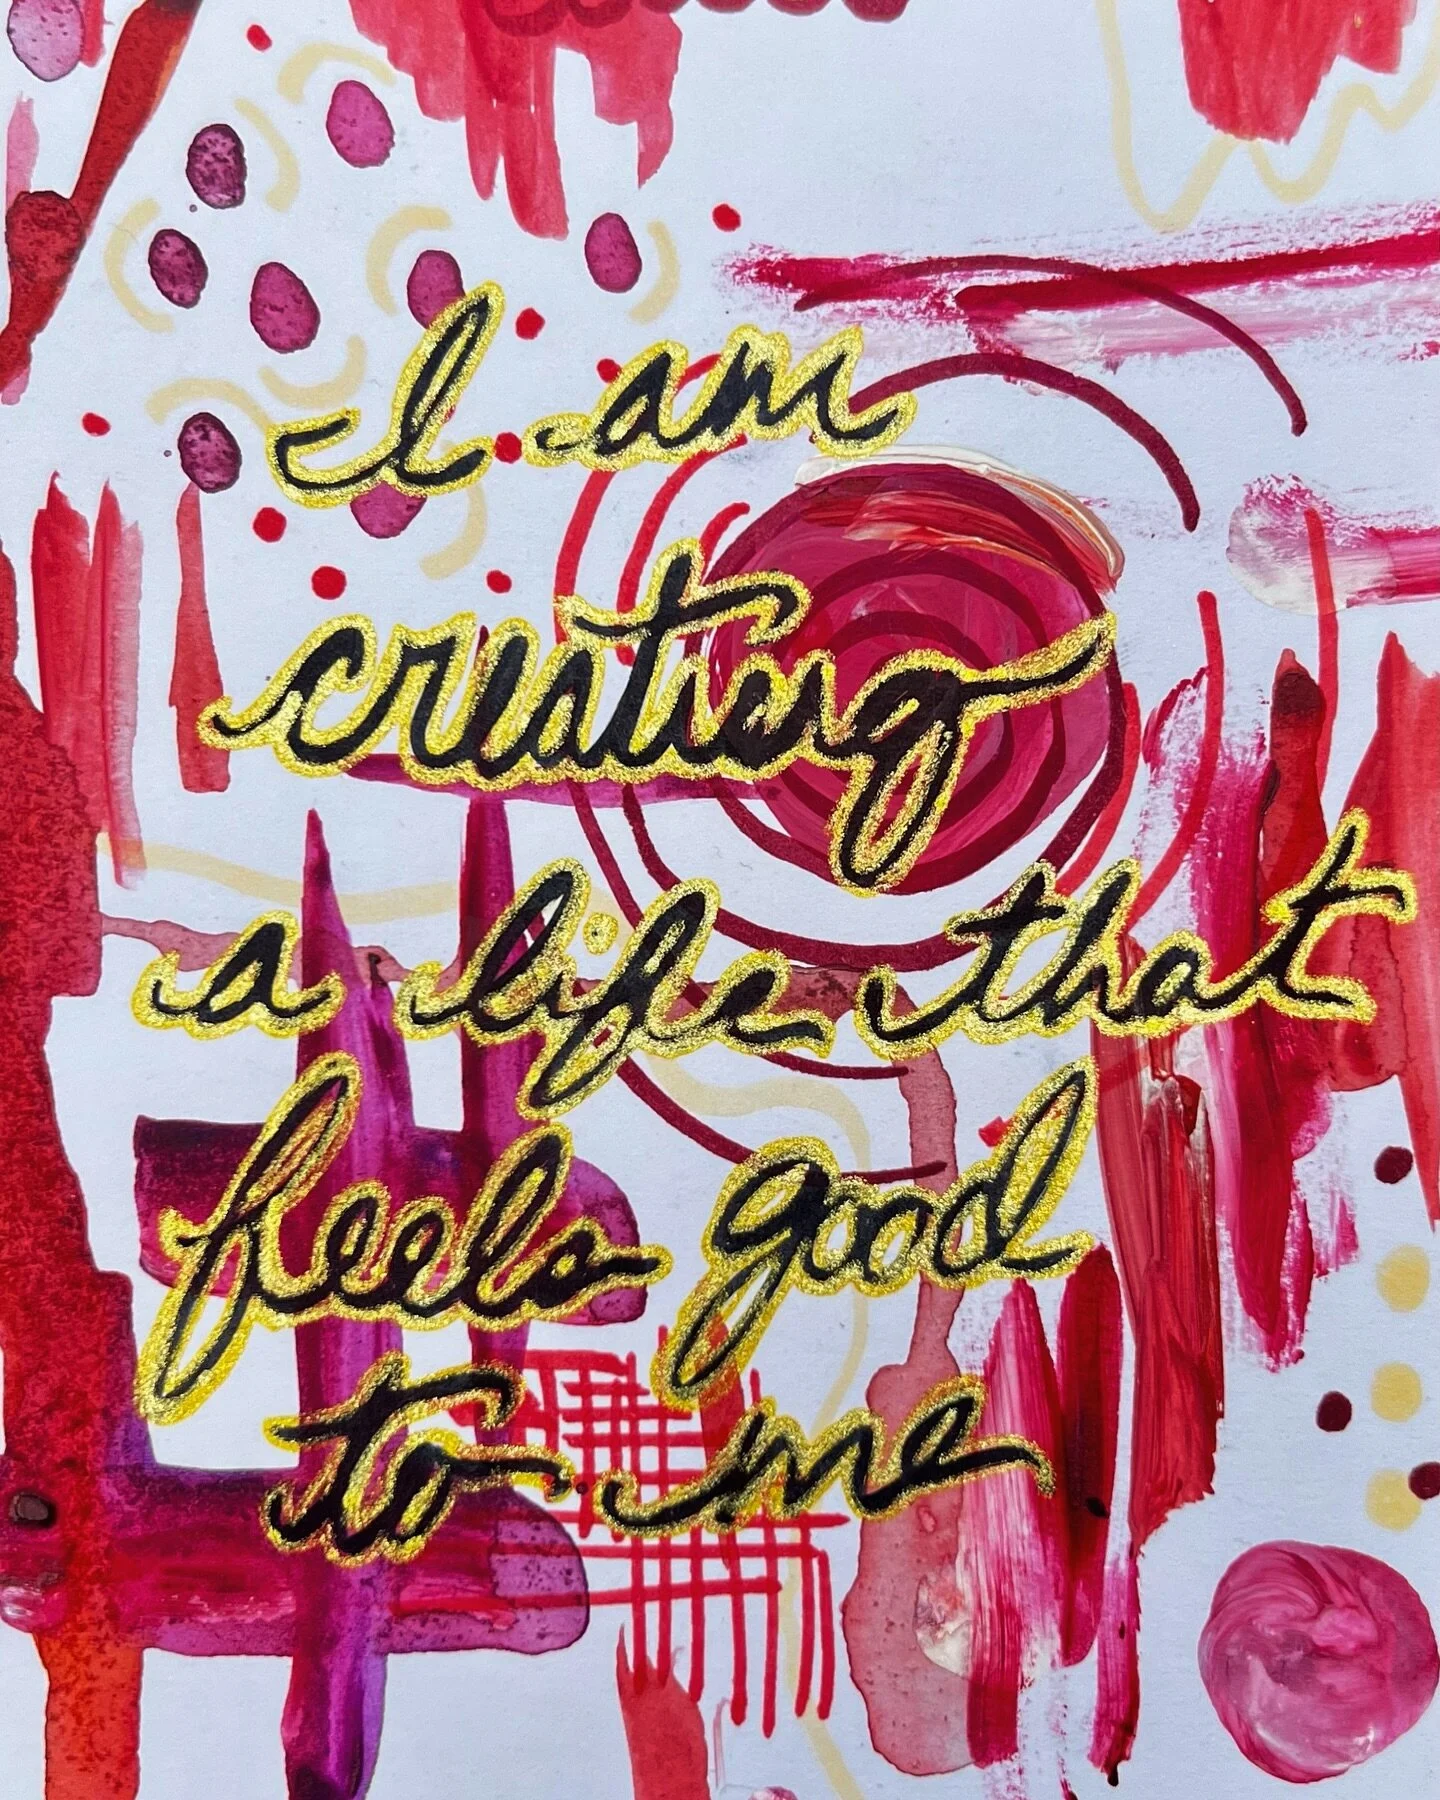 I am
creating
a life that
feels good
to me